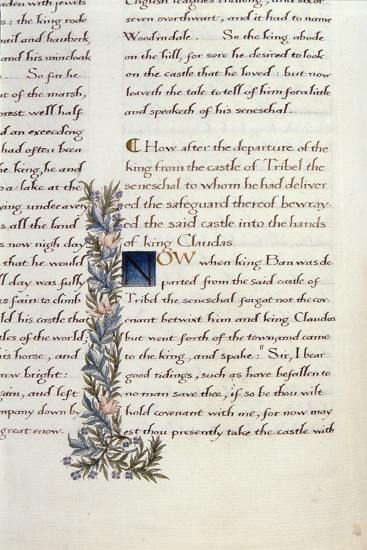 aden with jewels
s: the king rode
nail and hauberk
and his raincloak
So far he
t of the marsh,
rest well half
d an exceeding
had often been
he king, he and
o a lake at the
ying under a ver
s, all the land
was now nigh day
that he would
l day was fully
s fain to climb
ld his castle tha
tles of the world,
his horse, and
rew bright:
gain, and left
mpany down by
great enow.
English leagues endlong, and six or
seven overthwart, and it had to name
Woodindale. So the king abode
on the hill, for sore he desired to look
on the castle that he loved: but now
leaveth the tale to tell of him for a little
and speaketh of his seneschal.
How after the departure of the
king from the castle of Tribel the
seneschal to whom he had deliver
ed the safeguard thereof bewray
ed the said castle into the hands
of king Claudas.
NOW when king Ban was de
parted from the said castle of
Tribel the seneschal forgat not the cov
enant betwixt him and king Claudas
but went forth of the town, and came
to the king, and spake: "Sir, I bear
good tidings, such as have befallen to
no man save thee, if so be thou wilt
hold covenant with me, for now may
est thou presently take the castle with